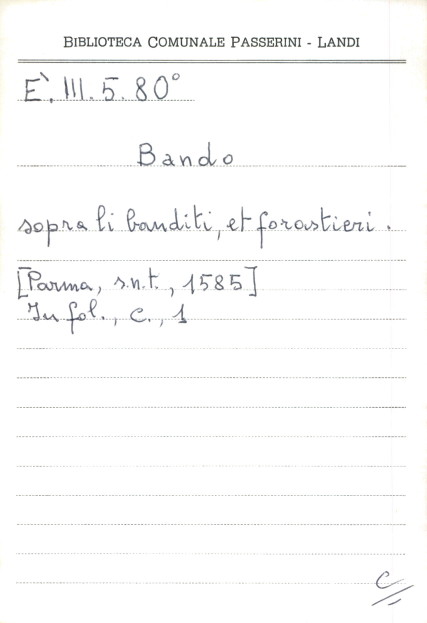 BIBLIOTECA COMUNALE PASSERINI - LANDI
È̖. III. 5. 80°
Bando
sopra li banditi, et forastieri.
[Parma, s.n.t., 1585]
In fol., c., 1
C